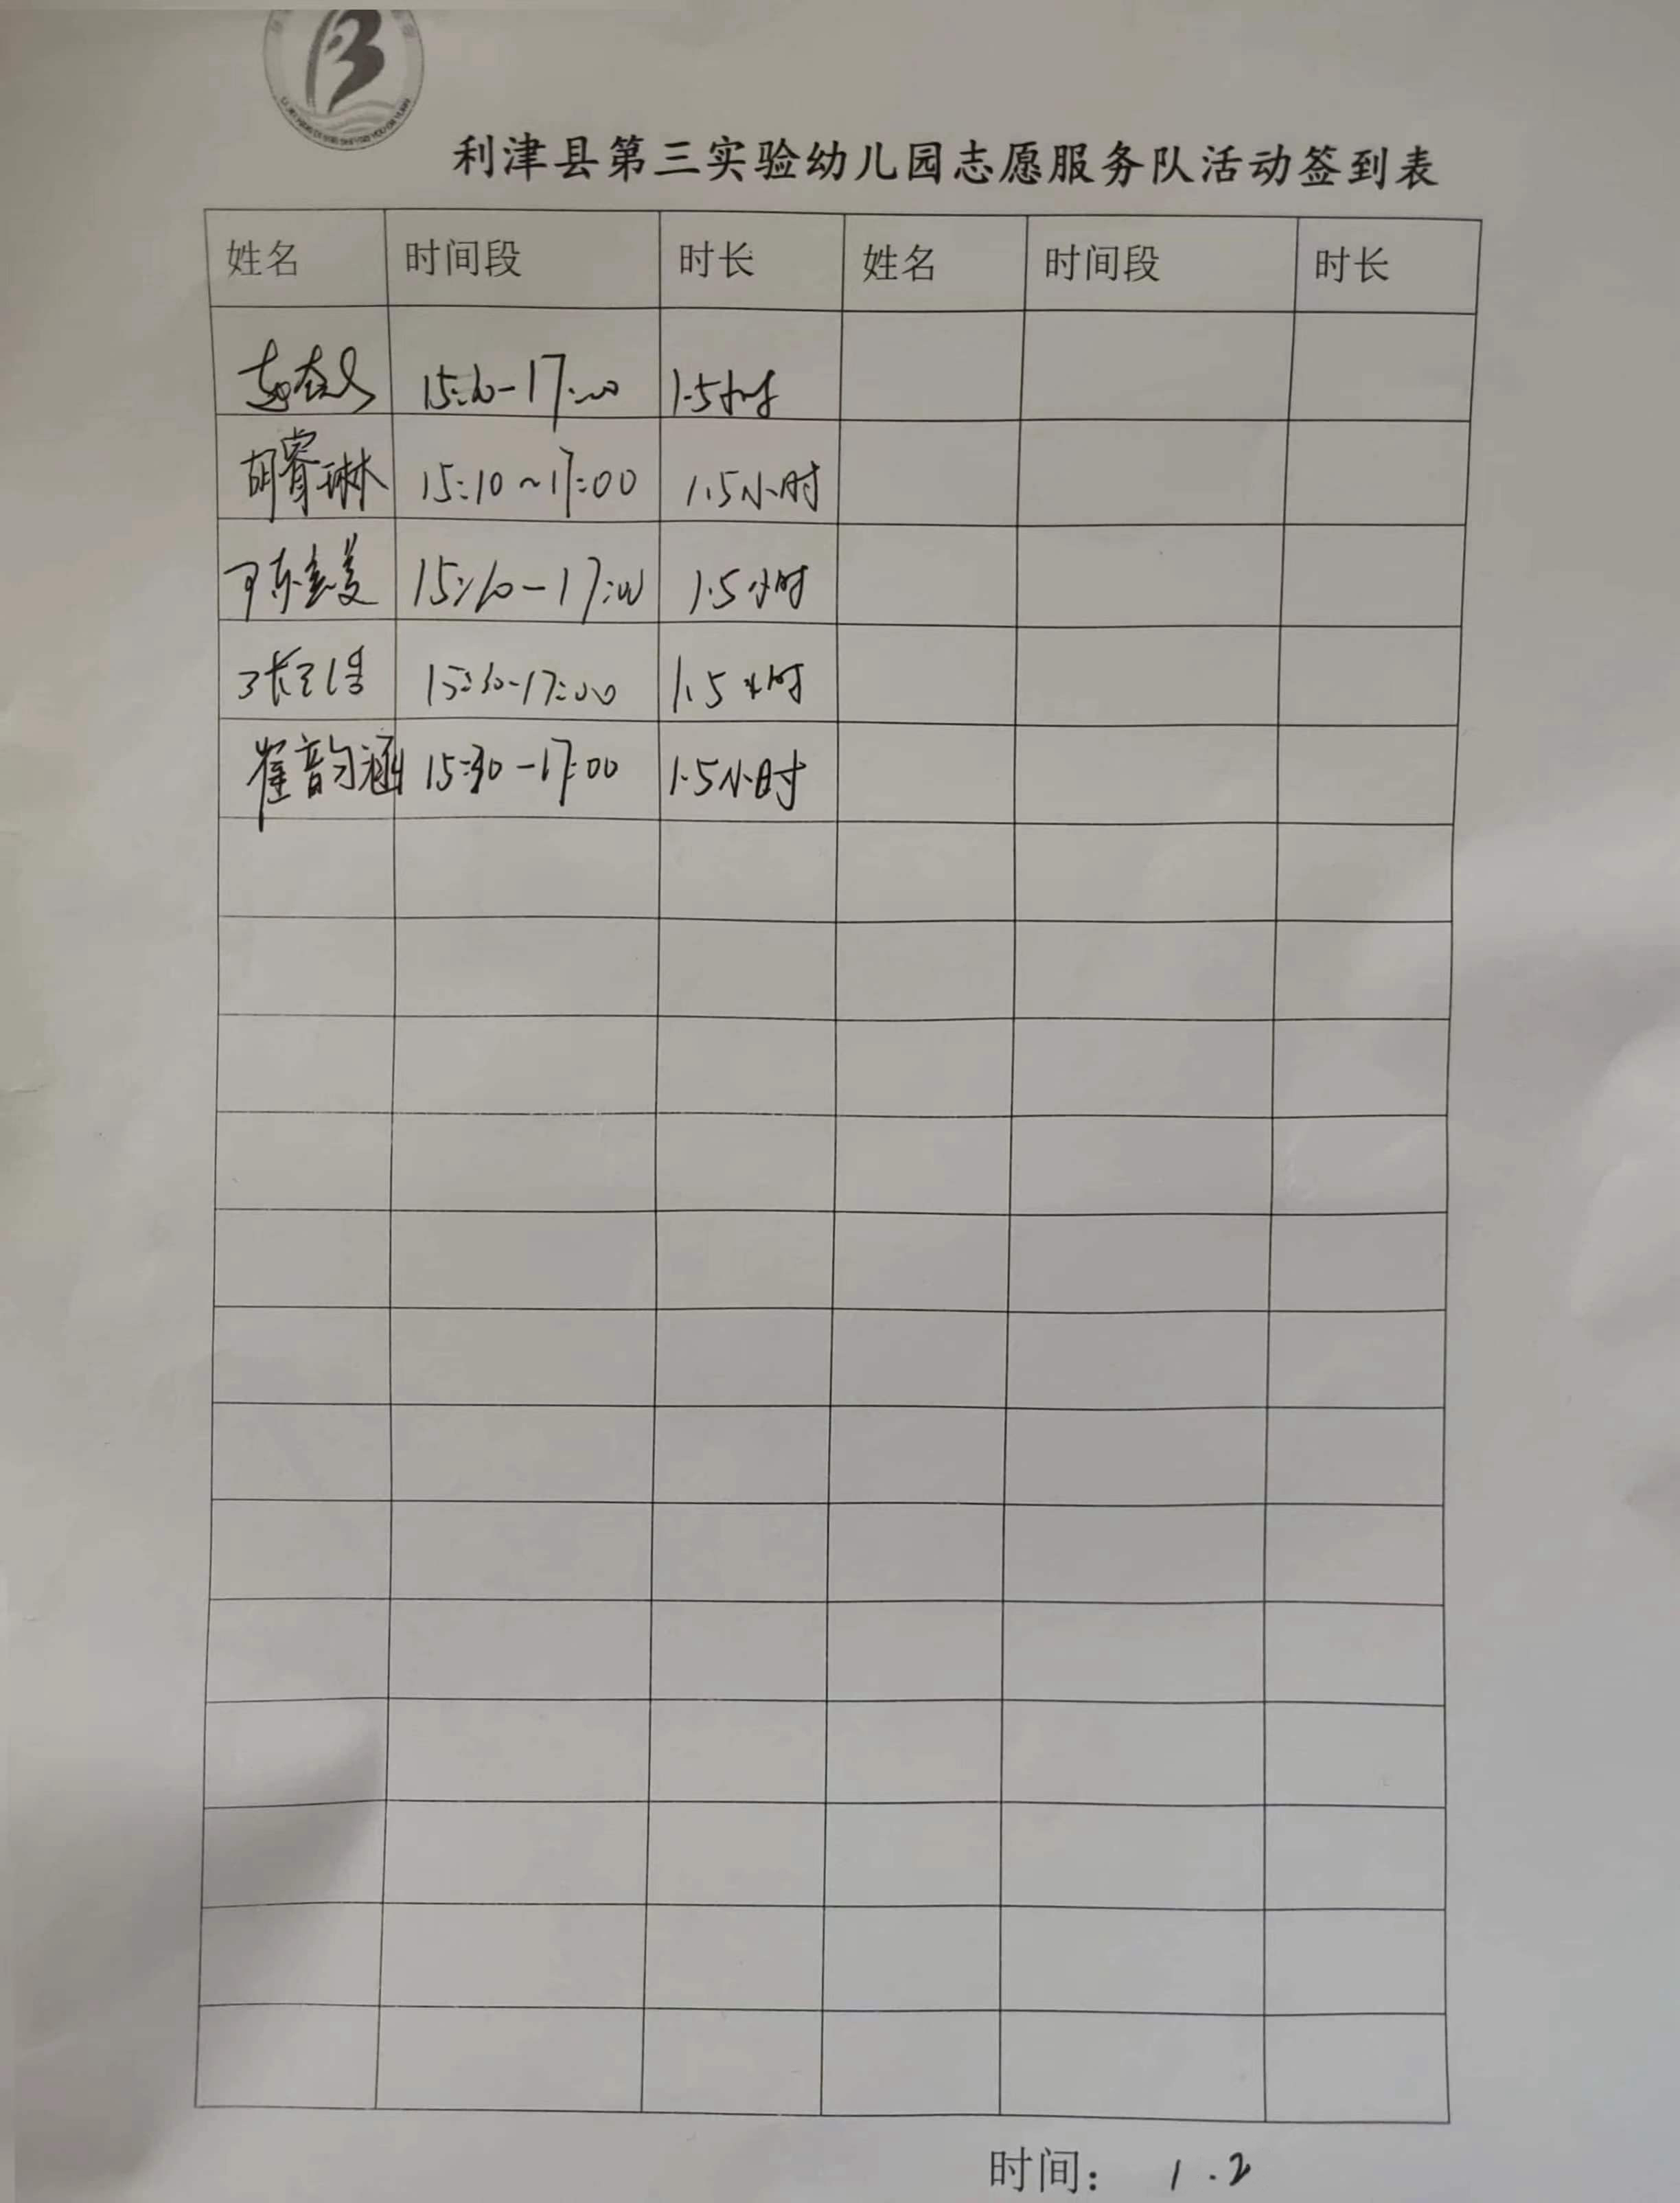 利津县第三实验幼儿园志愿服务队活动签到表
姓名 时间段 时长 姓名 时间段 时长
17:00 1.5小时
胡睿琳 15:10~17:00 1.5小时
17:00 1.5小时
15:30-17:00 1.5小时
崔韵涵 15:30-17:00 1.5小时
时间: 1.2